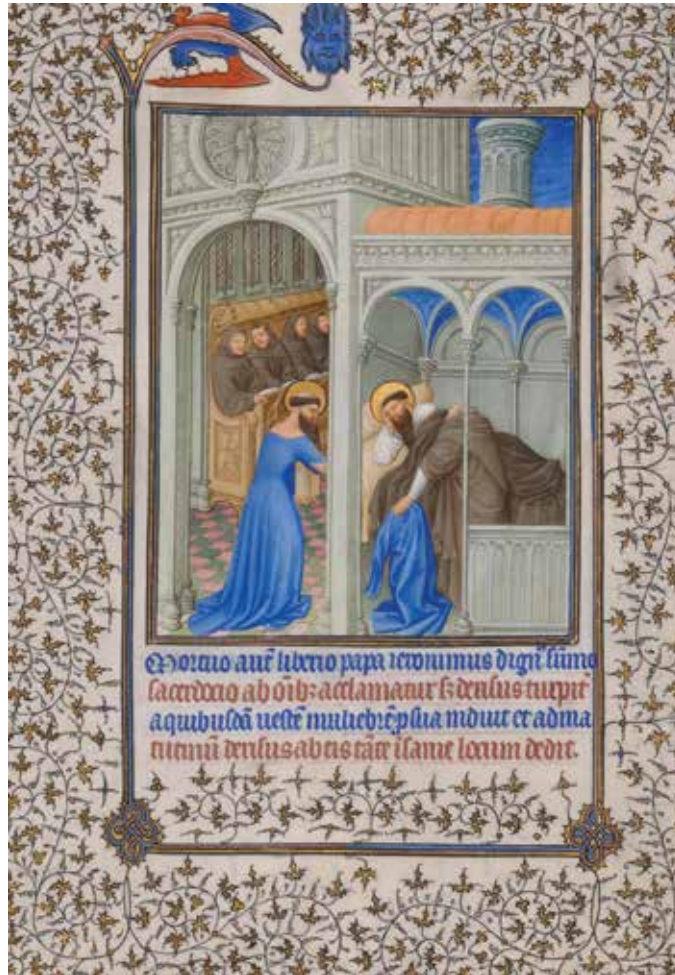 Mortuo aut̄ liberio papa ieronimus dign̄ sūmo
sacerdocio ab oīb; acclamatur s; derisus turpit̄
a quibusdā uestē muliebrē p̱ sua induit et ad ma
tutinū derisus ab eis tāte īsanie locum dedit.